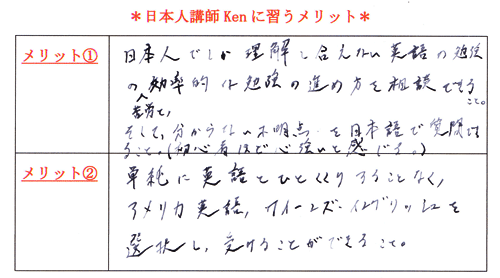 ＊日本人講師Kenに習うメリット＊
メリット①
日本人でしか理解し合えない英語の勉強
の効率的な勉強の進め方を相談できる
こと。
苦労と、
そして、分からない不明点を日本語で質問でき
ること。(初心者ほど心強いと感じます。)
メリット②
単純に英語とひとくくりすることなく、
アメリカ英語、クイーンズ・イングリッシュを
選択し、受けることができること。